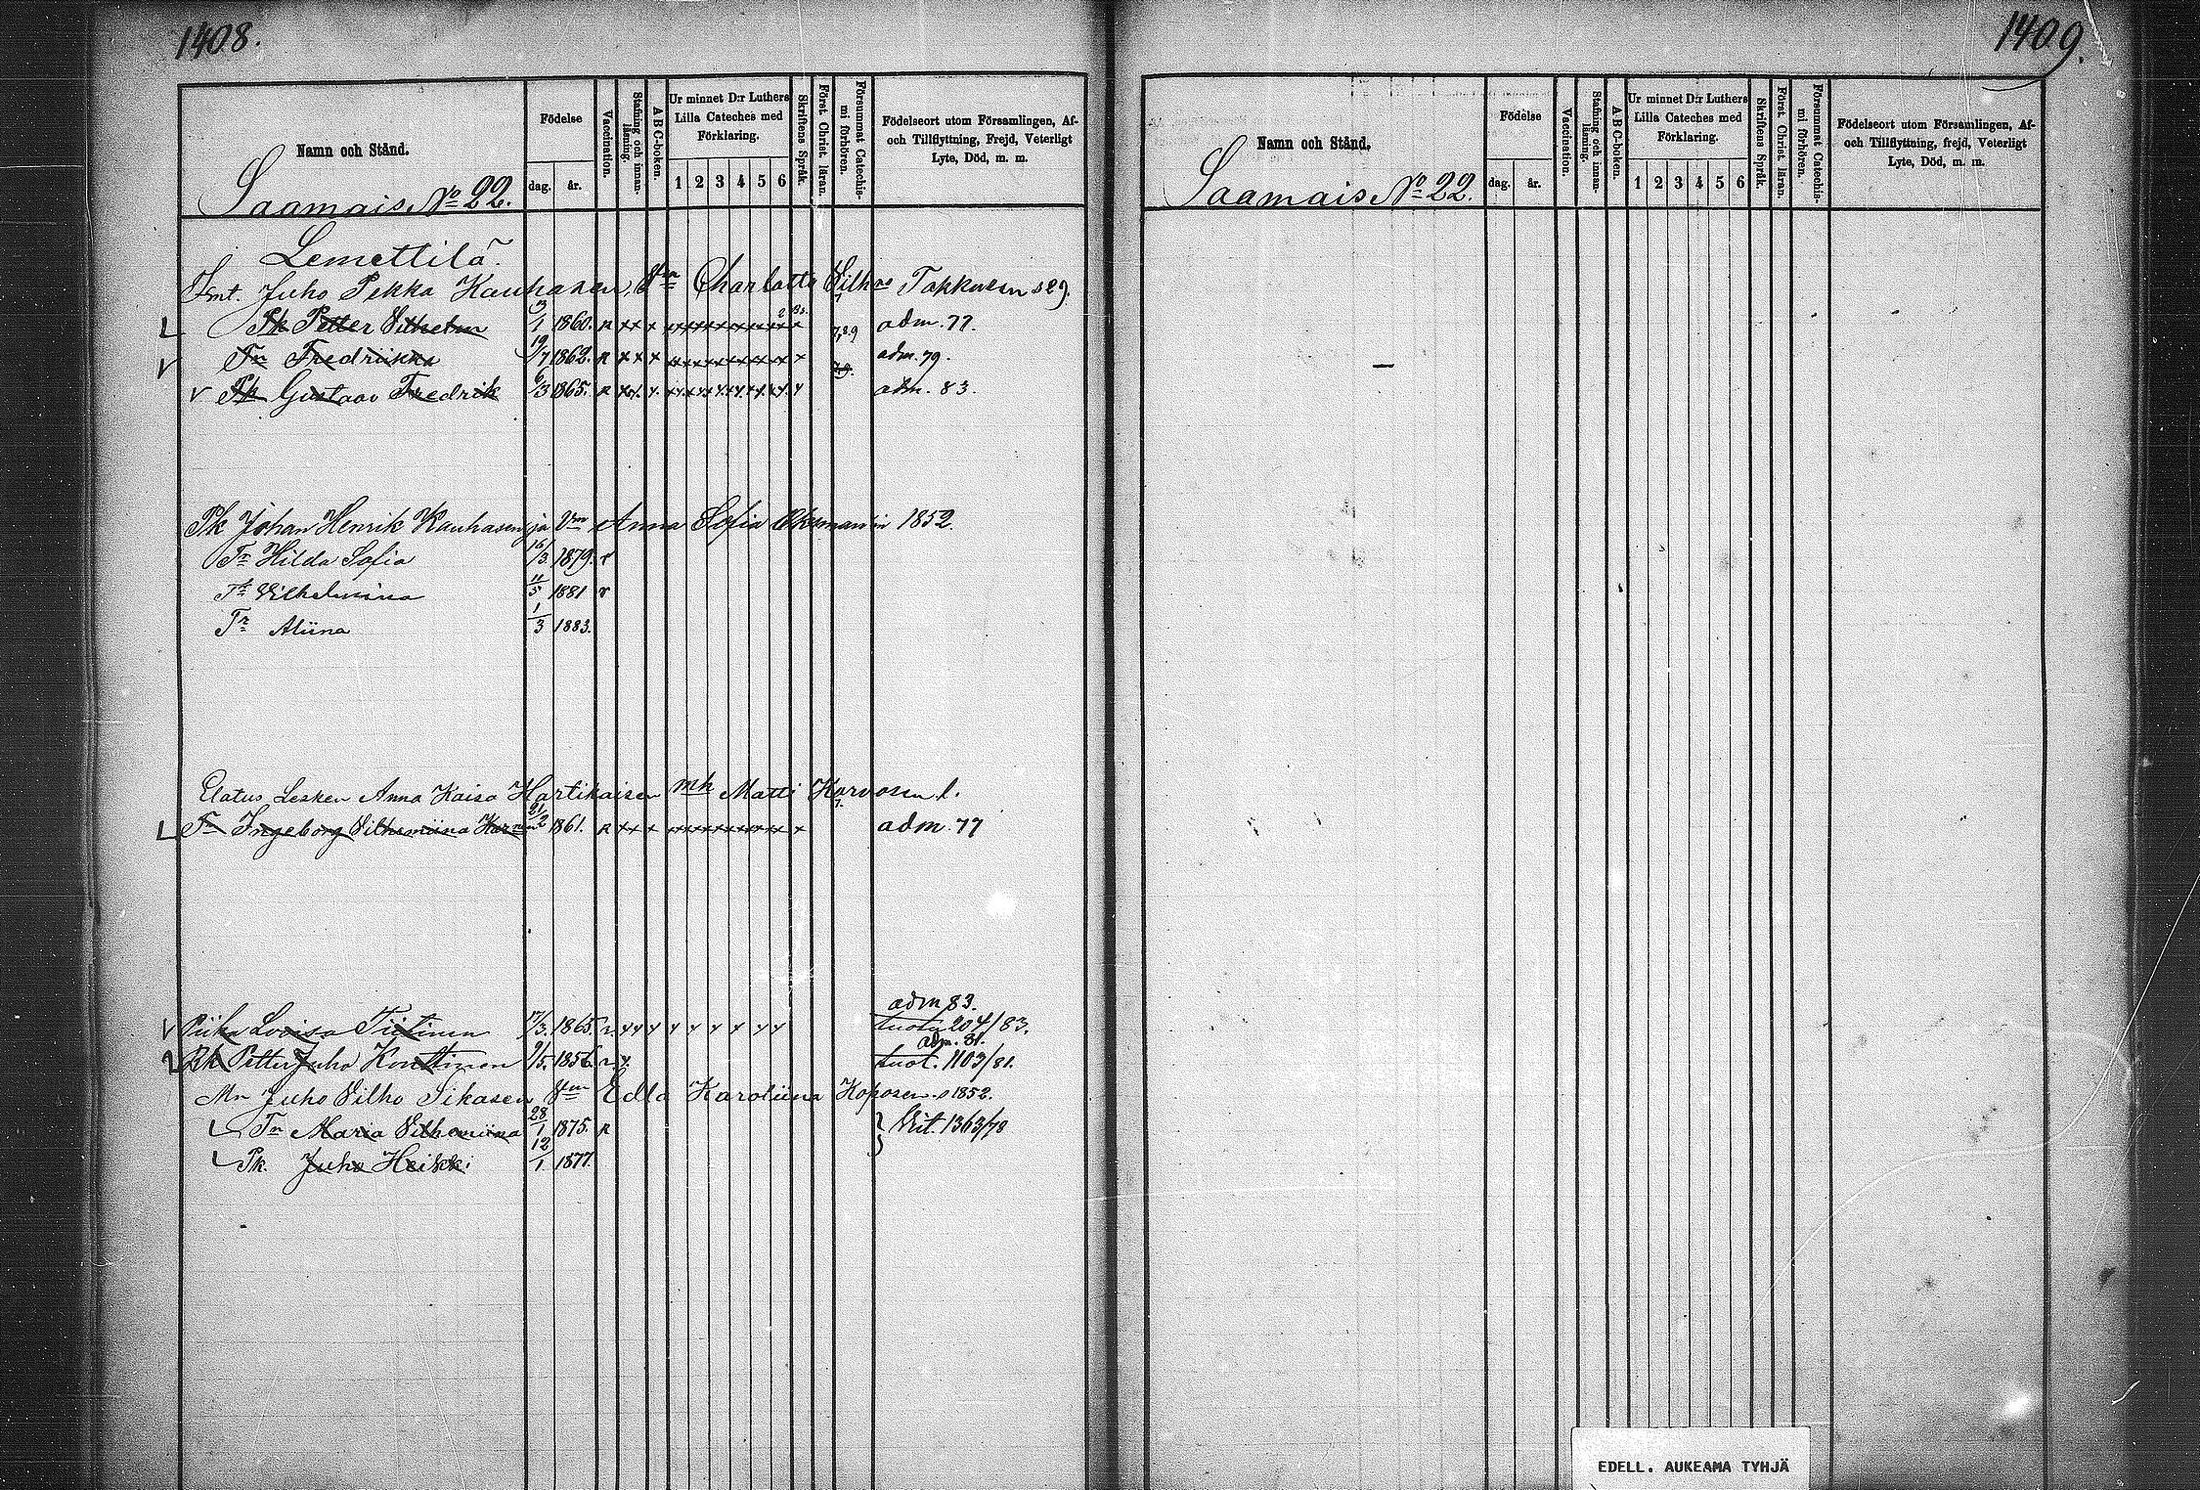 1408.
Namn och Stånd.
Födelse
dag. år.
Vaccination.
Stafning och innan-
läsning.
A B C-boken.
Ur minnet D:r Luthers
Lilla Cateches med
Förklaring.
1 2 3 4 5 6
Skriftens Språk.
Först. Christ. läran.
Försummat Catechis-
mi förhören.
Födelseort utom Församlingen, Af-
och Tillflyttning, Frejd, Veterligt
Lyte, Död, m. m.
Saamais No 22.
Lemettilä
Juho Pekka Kauhasen, Vm Charlotta Takkusen s 29.
Pk Petter Vilhelm 1860. adm. 77.
Tr Fredriikka 19/7 1862. adm. 79.
Pk Gustaav Fredrik 6/3 1865. adm. 83.
Pk Johan Henrik Kauhasen ja Vm Anna Sofia 1852.
Tr Hilda Sofia 16/3 1879. r
Tr Vilhelmina 11/5 1881 r
Tr Aliina 1/3 1883.
Lesken Anna Kaisa Hartikaisen mh Matti Korvosen l.
Tr Ingeborg Vilhemiina 21/2 1861. adm. 77
adm. 83.
Piika Lovisa Tiitinen 1865. 204/83.
adm. 81.
Rk Petter Juho Konttinen 9/5. 1856. tuot. 1103/81.
Mn Juho Vilho Sikasen Vm Edla Karoliina Koposen s 1852.
Tr Maria Vilhemiina 28/1 1875. Vit. 1363/78
Pk. Juho Heikki 12/1 1877.
1409.
Namn och Stånd.
Födelse
dag. år.
Vaccination.
Stafning och innan-
läsning.
A B C-boken.
Ur minnet D:r Luthers
Lilla Cateches med
Förklaring.
1 2 3 4 5 6
Skriftens Språk.
Först. Christ. läran.
Försummat Catechis-
mi förhören.
Födelseort utom Församlingen, Af-
och Tillflyttning, frejd, Veterligt
Lyte, Död, m. m.
Saamais No 22.
EDELL. AUKEAMA TYHJÄ